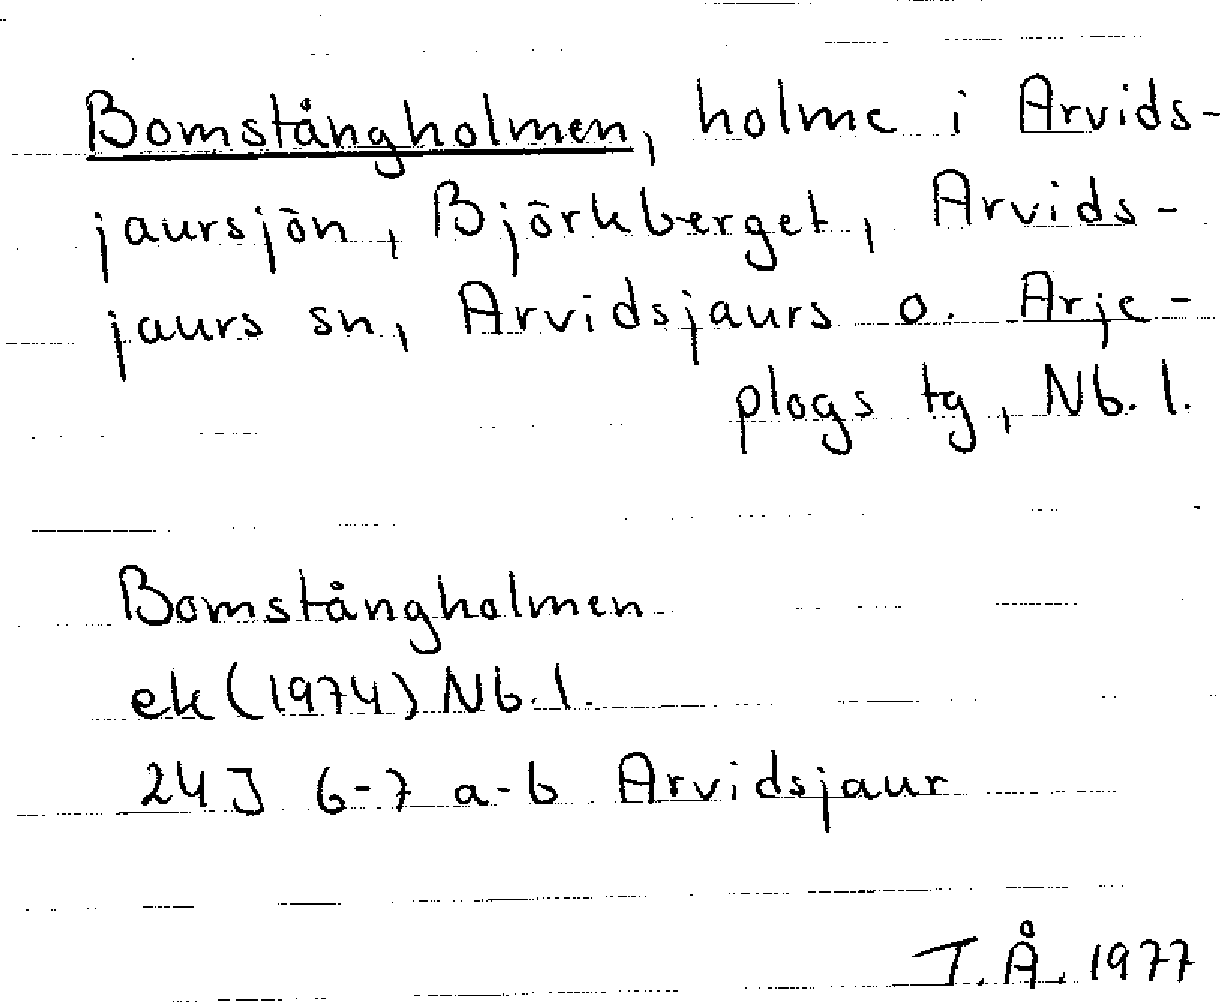 Bomstångholmen, holme i Arvids-
jaursjön, Björkberget, Arvids-
jaurs sn, Arvidsjaurs o. Arje-
plogs tg, Nb. l.
Bomstångholmen
ek (1974) Nb. l.
24J 6-7 a-b Arvidsjaur
J. Å. 1977